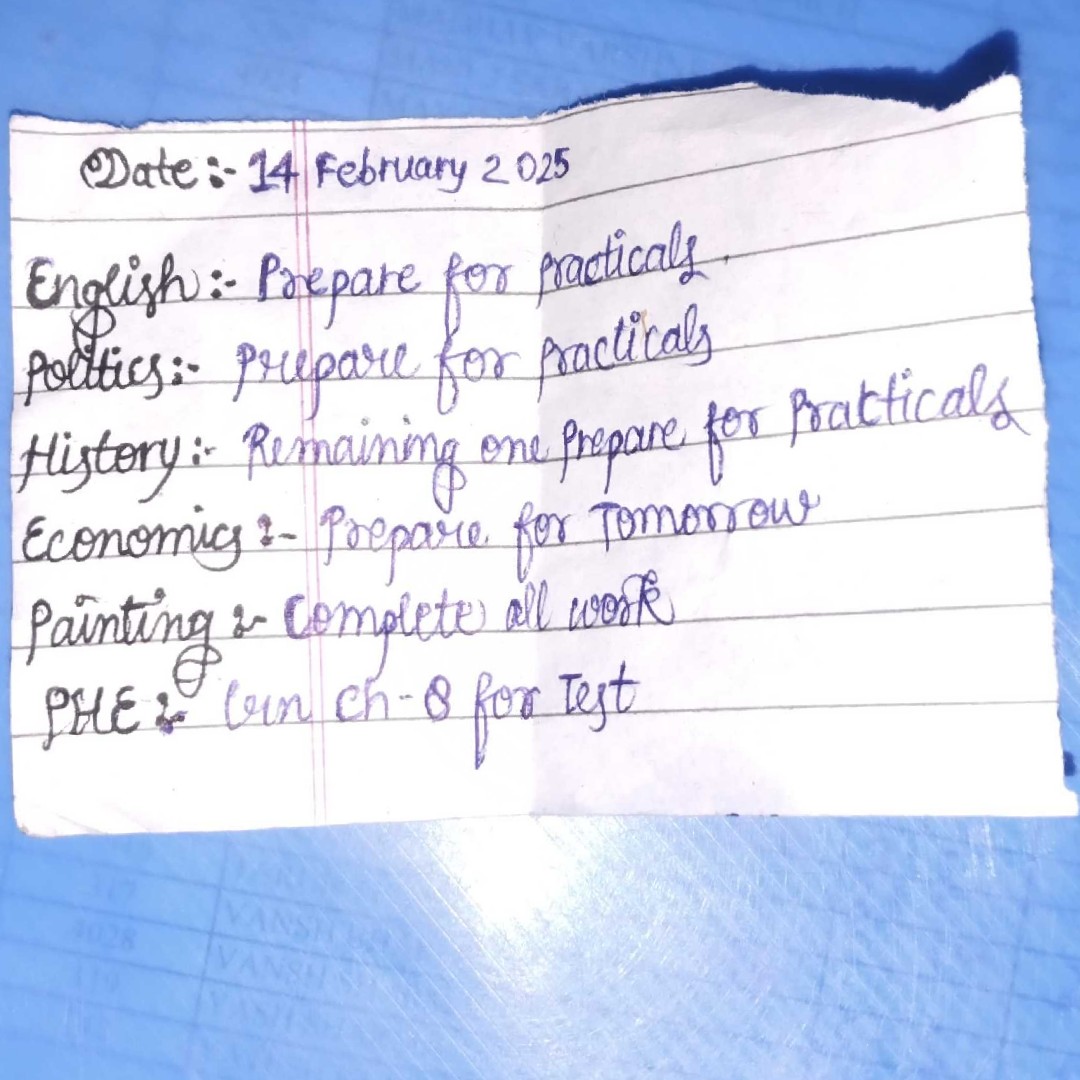 Date :- 14 February 2025
English :- Prepare for practicals.
Politics :- Prepare for practicals
History :- Remaining one prepare for Practicals
Economics :- Prepare for Tomorrow
Painting :- Complete all work
PHE :- Lern Ch-8 for Test
VANSH
VANSH